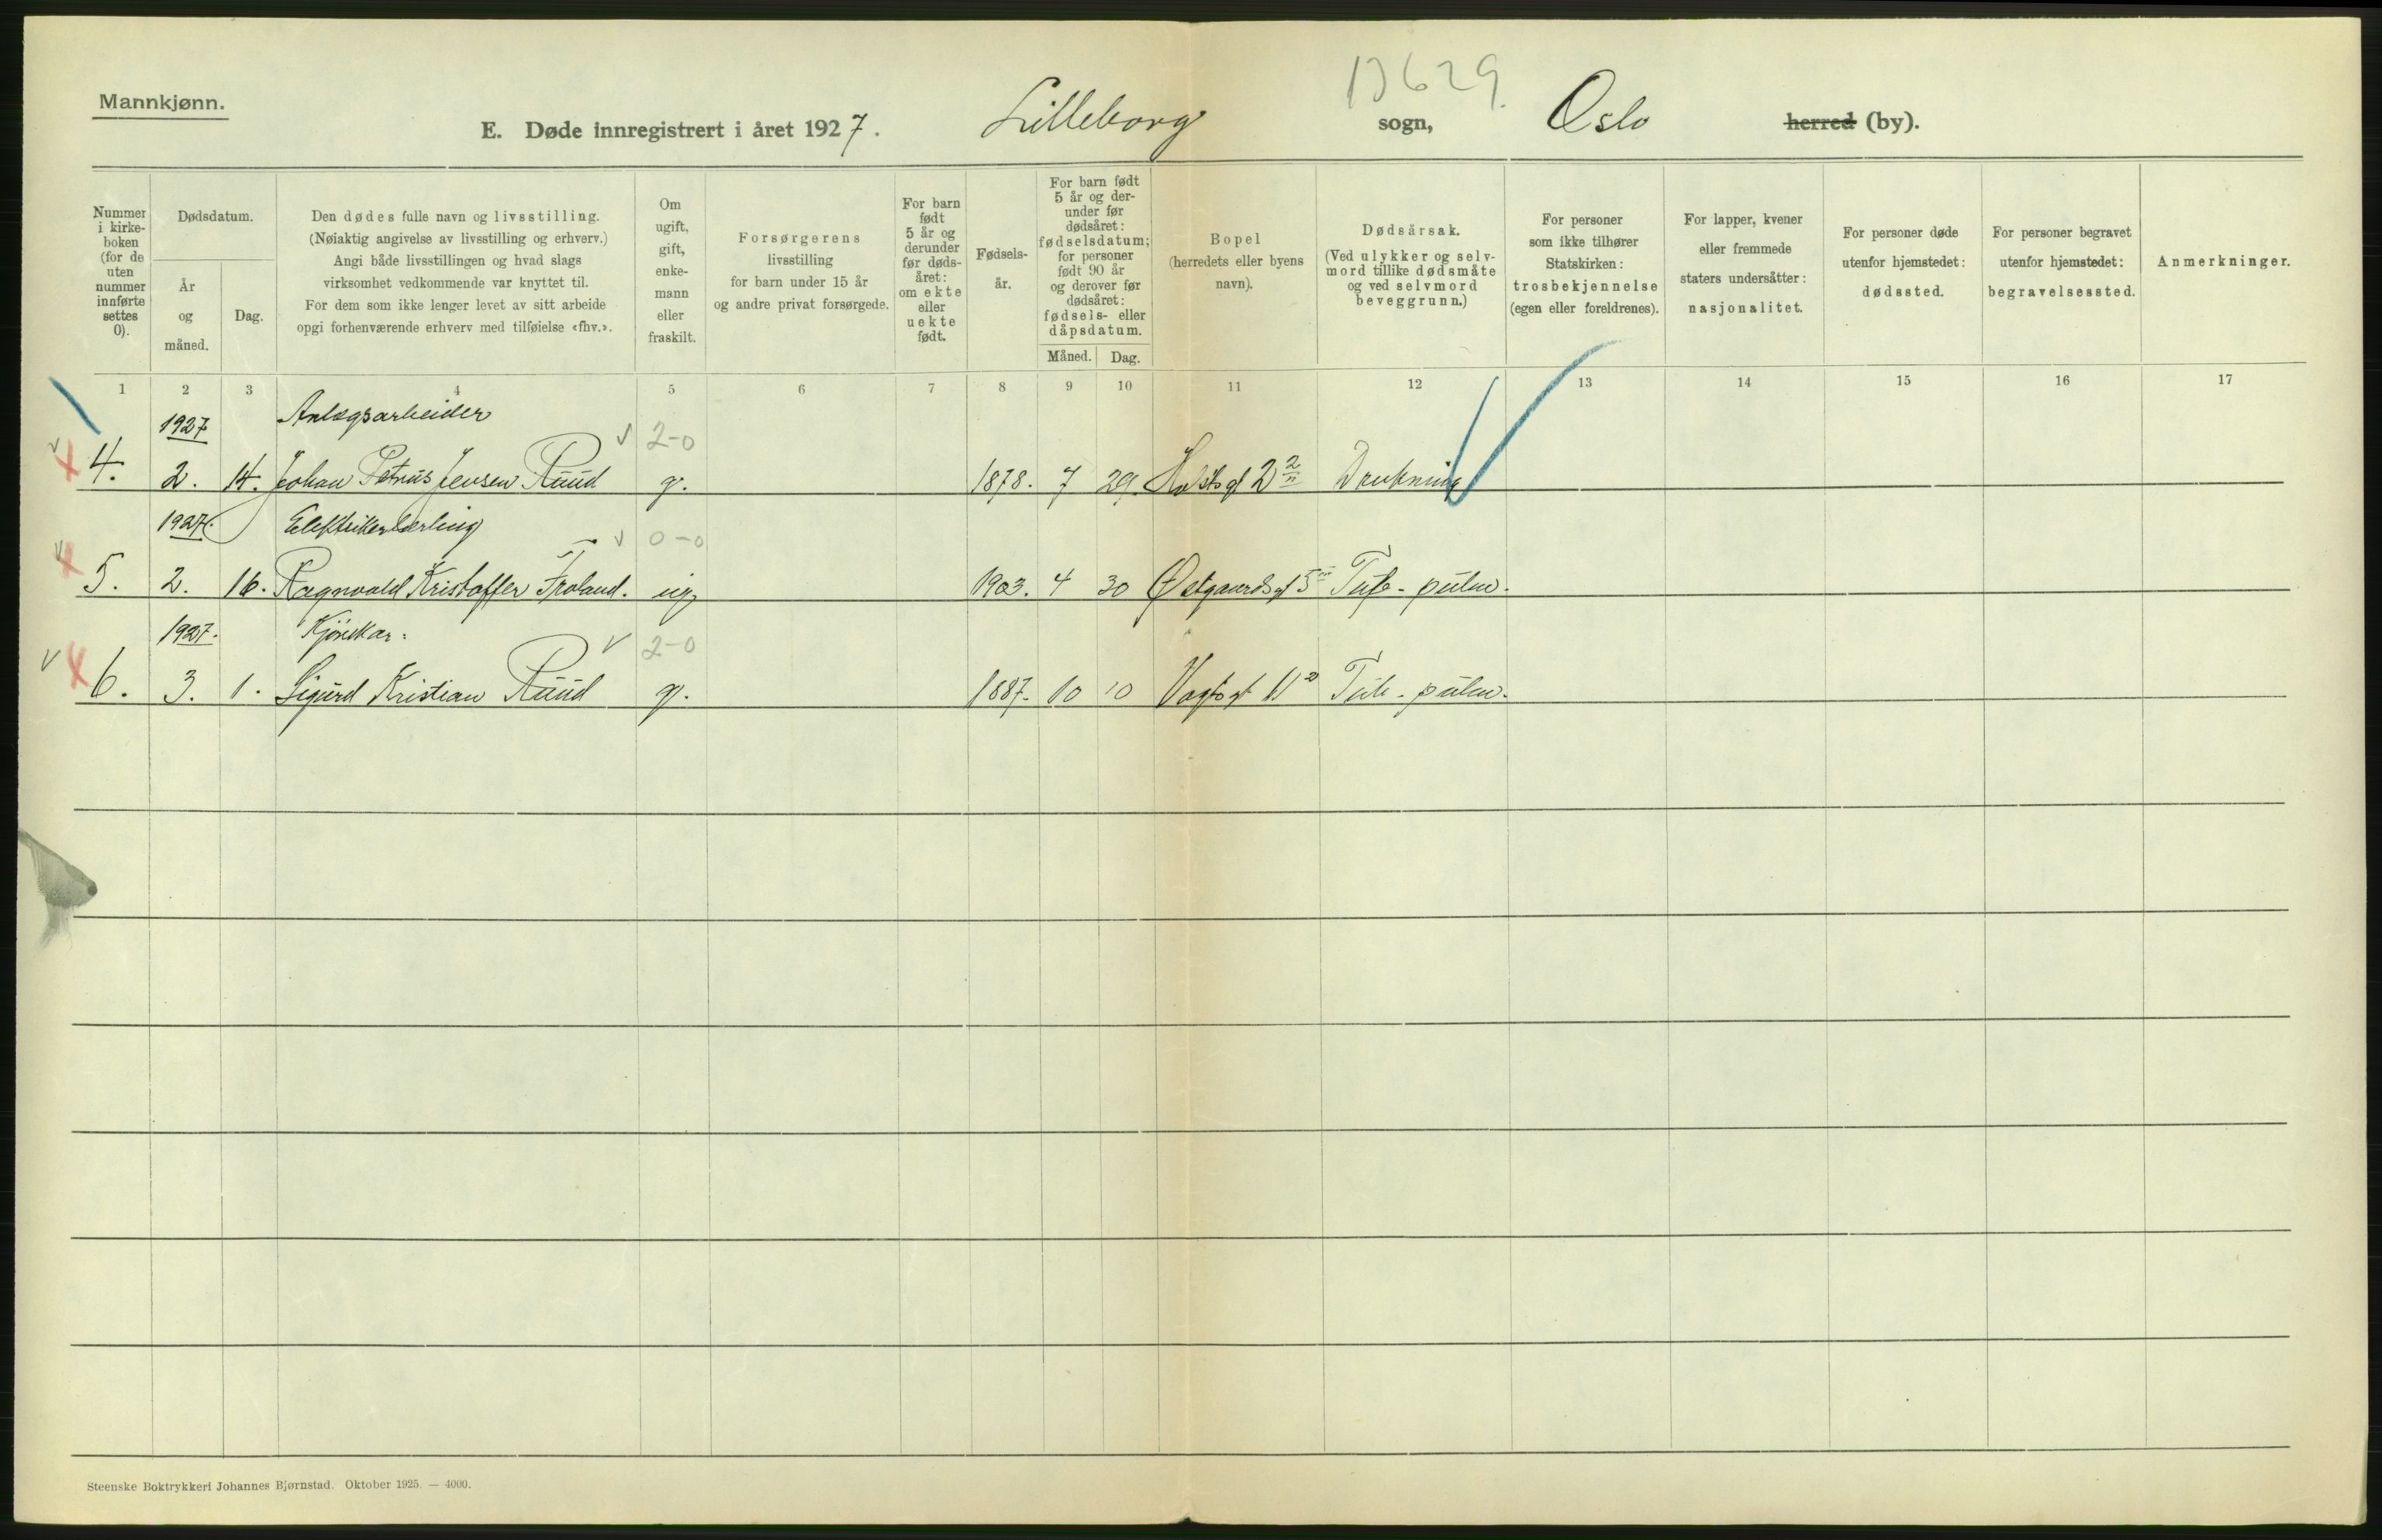 Mannkjønn.
13629.
E. Døde innregistrert i året 1927. Lilleborg sogn, Oslo herred (by).
Nummer i kirke-boken (for de uten nummer innførte settes 0).
Dødsdatum.
År og måned.
Dag.
Den dødes fulle navn og livsstilling.
(Nøiaktig angivelse av livsstilling og erhverv.)
Angi både livsstillingen og hvad slags
virksomhet vedkommende var knyttet til.
For dem som ikke lenger levet av sitt arbeide
opgi forhenværende erhverv med tilføielse «fhv.».
Om ugift, gift, enke-mann eller fraskilt.
Forsørgerens
livsstilling
for barn under 15 år
og andre privat forsørgede.
For barn født 5 år og derunder før døds-året: om ekte eller uekte født.
Fødsels-år.
For barn født 5 år og der-under før dødsåret: fødselsdatum; for personer født 90 år og derover før dødsåret: fødsels- eller dåpsdatum.
Måned. Dag.
Bopel
(herredets eller byens
navn).
Dødsårsak.
(Ved ulykker og selv-
mord tillike dødsmåte
og ved selvmord
beveggrunn.)
For personer
som ikke tilhører
Statskirken:
trosbekjennelse
(egen eller foreldrenes).
For lapper, kvener
eller fremmede
staters undersåtter:
nasjonalitet.
For personer døde
utenfor hjemstedet:
dødssted.
For personer begravet
utenfor hjemstedet:
begravelsessted.
Anmerkninger.
1 2 3 4 5 6 7 8 9 10 11 12 13 14 15 16 17
1927 Anlægsarbeider 2-0
4. 2. 14. Johan Petrus Jensen Ruud g. 1878. 7 29. Holstsgt 2 Drukning
1927. Elektrikerlærling 0-0
5. 2. 16. Ragnvald Kristoffer Froland. ug. 1903. 4 30 Østgaardsgt 5 Tub. pulm.
1927. Kjørekar. 2-0
6. 3. 1. Sigurd Kristian Ruud g. 1887. 10 10 Vogtsgt 11 Tub. pulm.
Steenske Boktrykkeri Johannes Bjørnstad. Oktober 1925. — 4000.